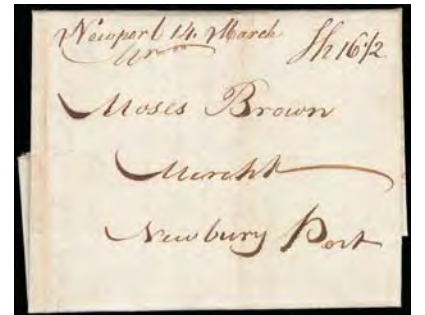 Newport 14 March Sh 16/2
Moses Brown
Mercht
Newbury Port